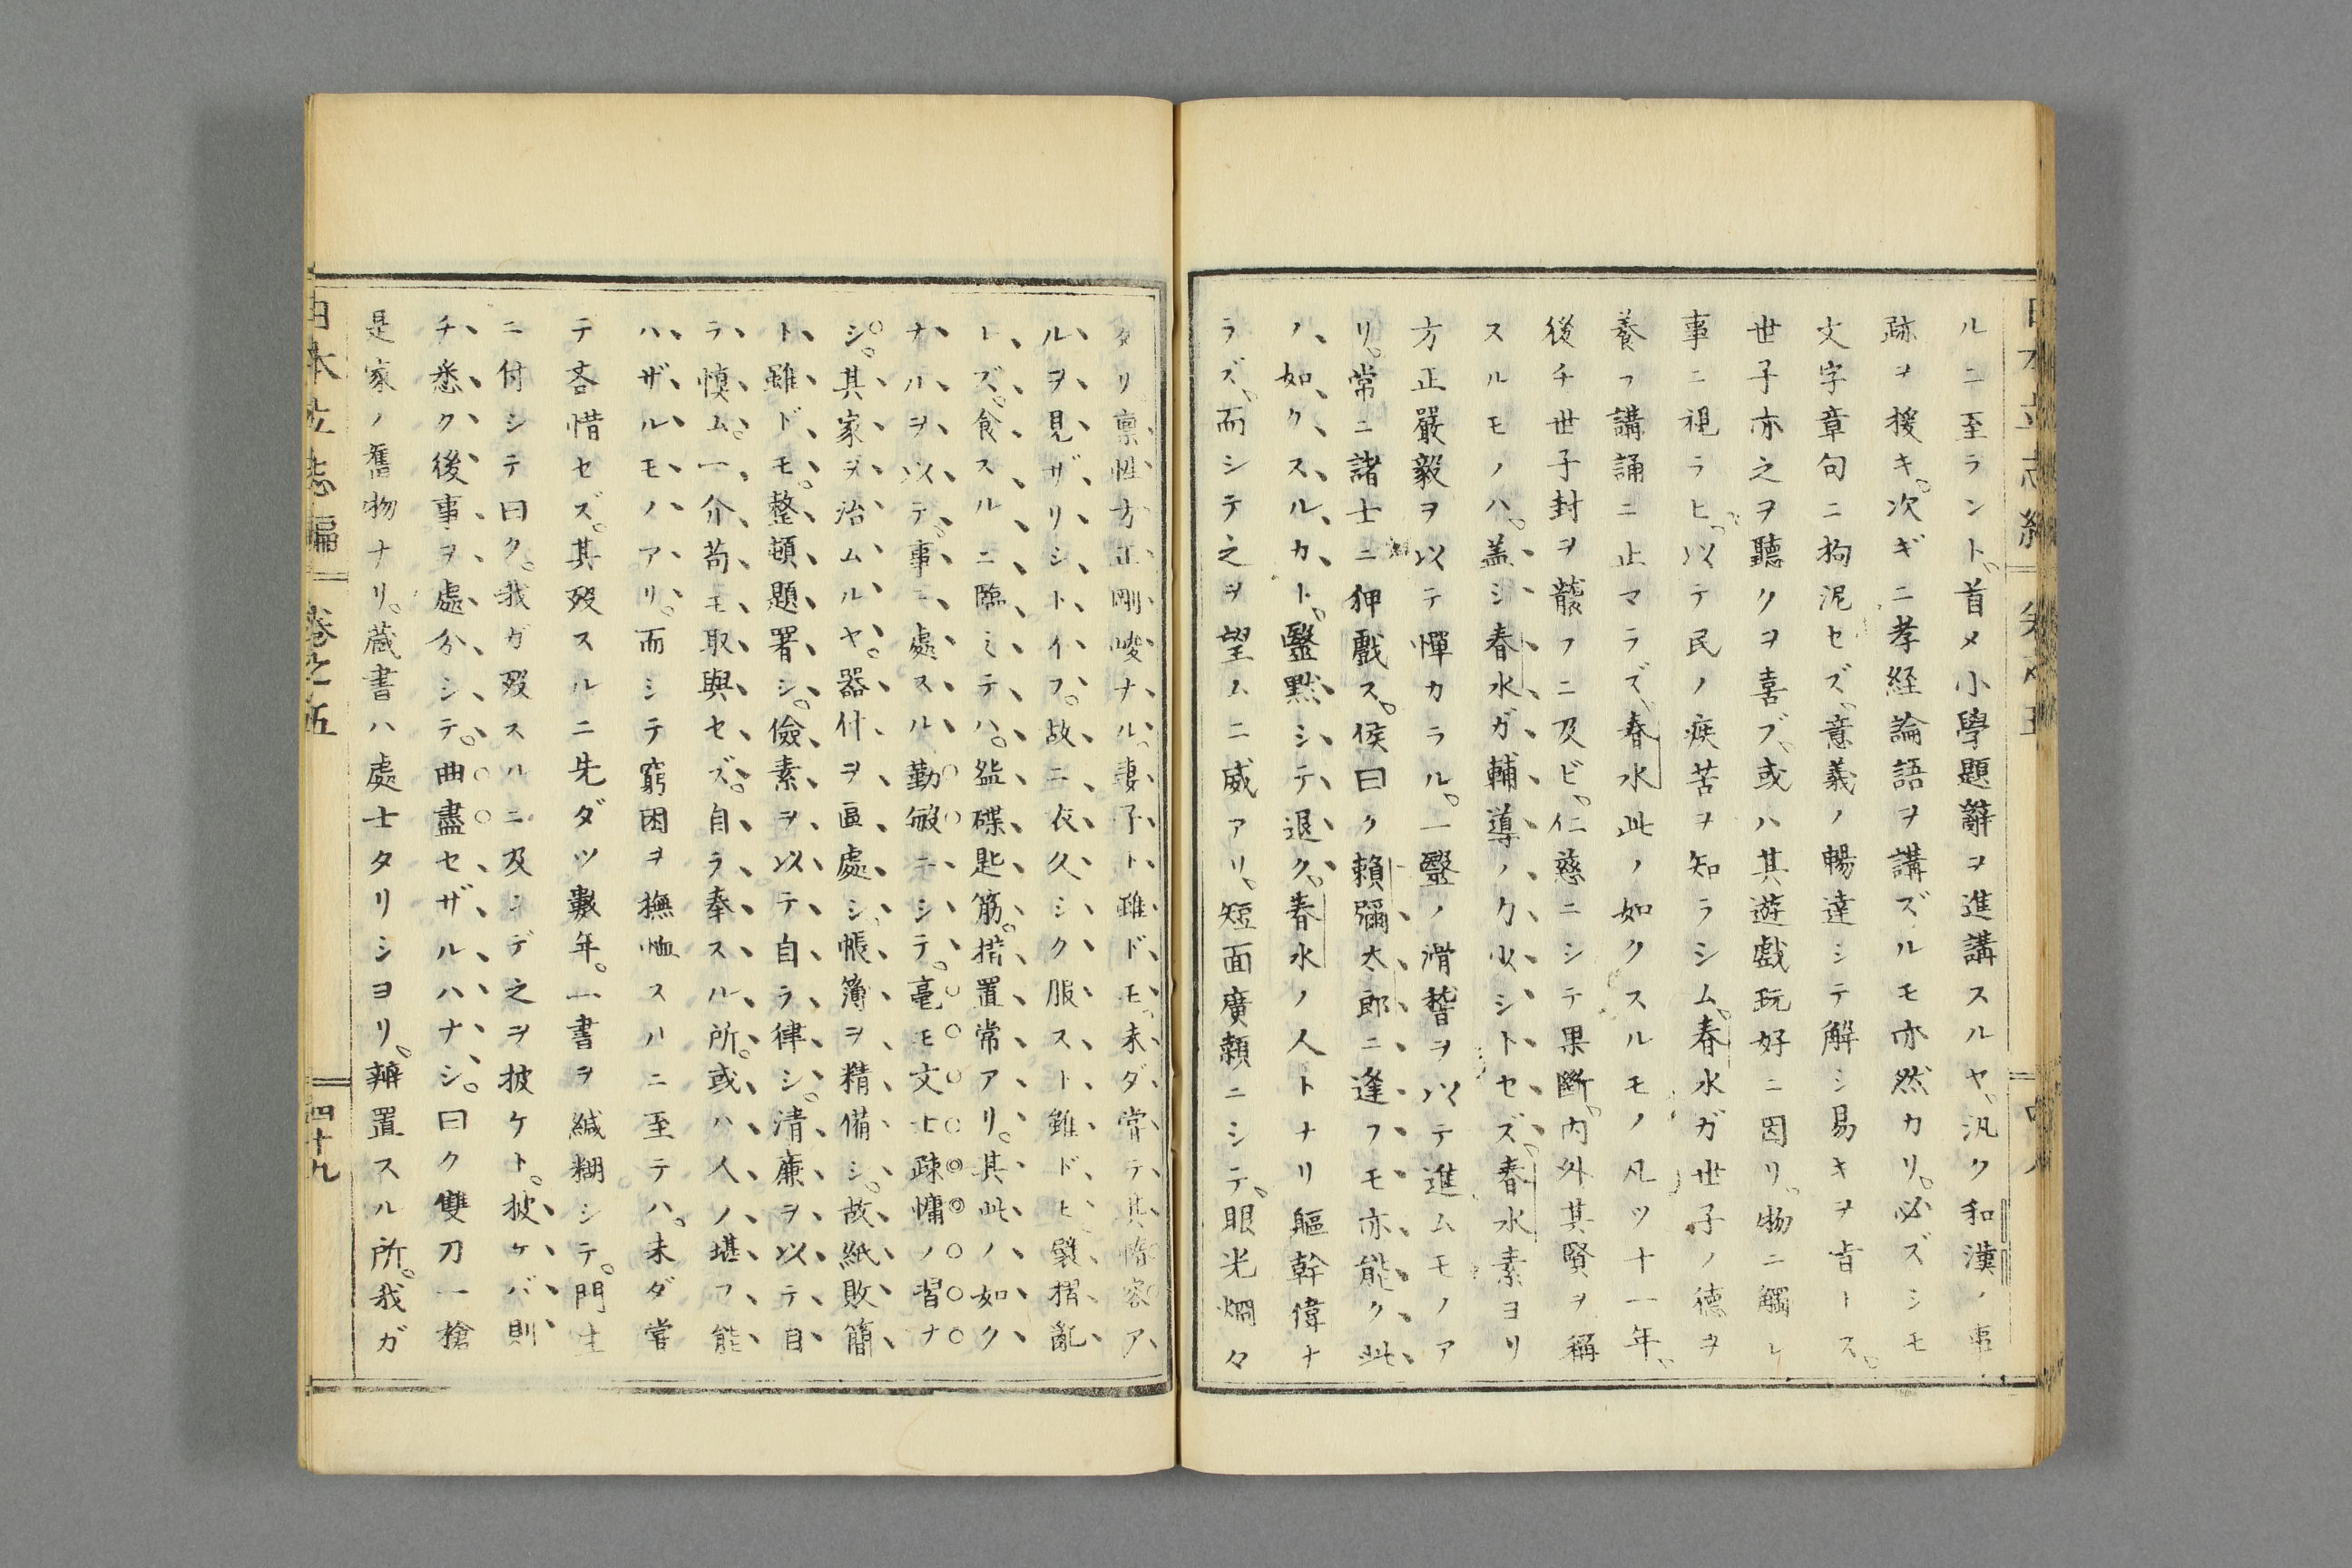 ルニ至ラント、首メ小學題辭ヲ進講スルヤ、汎ク和漢ノ事
跡ヲ援キ。次ギニ孝経論語ヲ講ズルモ亦然カリ。必ズシモ
文字章句ニ拘泥セズ、意義ノ暢達シテ解シ易キヲ旨トス。
世子亦之ヲ聽クヲ喜ブ、或ハ其遊戯玩好ニ因リ。物ニ觸レ
事ニ視ラヒ。以テ民ノ疾苦ヲ知ラシム。春水ガ世子ノ德ヲ
養フ講誦ニ止マラズ、春水此ノ如クスルモノ凡ツ十一年。
後チ世子封ヲ襲フニ及ビ。仁慈ニシテ果斷。内外其賢ヲ稱
スルモノハ。盖シ春水ガ輔導ノ力少シトセズ、春水素ヨリ
方正嚴毅ヲ以テ憚カラル。一豎ノ滑稽ヲ以テ進ムモノア
リ。常ニ諸士ニ狎戲ス。侯曰ク賴彌太郎ニ逢フモ亦能ク此
ノ如クスルカト。豎黙シテ退ク。春水ノ人トナリ軀幹偉ナ
ラズ、而シテ之ヲ望ムニ威アリ。短面廣顙ニシテ。眼光烱々
日本立志編 卷之五
タリ稟性方正剛峻ナル。妻子ト雖ドモ、未ダ甞テ其惰容ア
ルヲ見ザリシトイフ。故ニ衣久シク服スト雖ドヒ。襞摺亂
レズ。食スルニ臨ミテハ。盆碟匙筯。措置常アリ。其此ノ如ク
ナルヲ以テ。事ニ處スル勤敏ニシテ。毫モ文士疎慵ノ習ナ
シ。其家ヲ治ムルヤ。器什ヲ區處シ、帳簿ヲ精備シ。故紙敗簡
ト雖ドモ。整頓題署シ。儉素ヲ以テ自ラ律シ。清廉ヲ以テ自
ラ愼ム。一介苟モ取與セズ。自ラ奉スル所。或ハ人ノ堪フ能
ハザルモノアリ。而シテ窮困ヲ撫恤スルニ至テハ。未ダ甞
テ吝惜セズ。其歿スルニ先ダツ數年。一書ヲ緘糊シテ。門生
ニ付シテ曰ク。我ガ歿スルニ及ンデ之ヲ披ケト。披ケバ則
チ悉ク後事ヲ處分シテ。曲盡セザルハナシ。曰ク雙刀一槍
是家ノ舊物ナリ。蔵書ハ處士タリシヨリ。辨置スル所。我ガ
日本立志編 卷之五 四十九